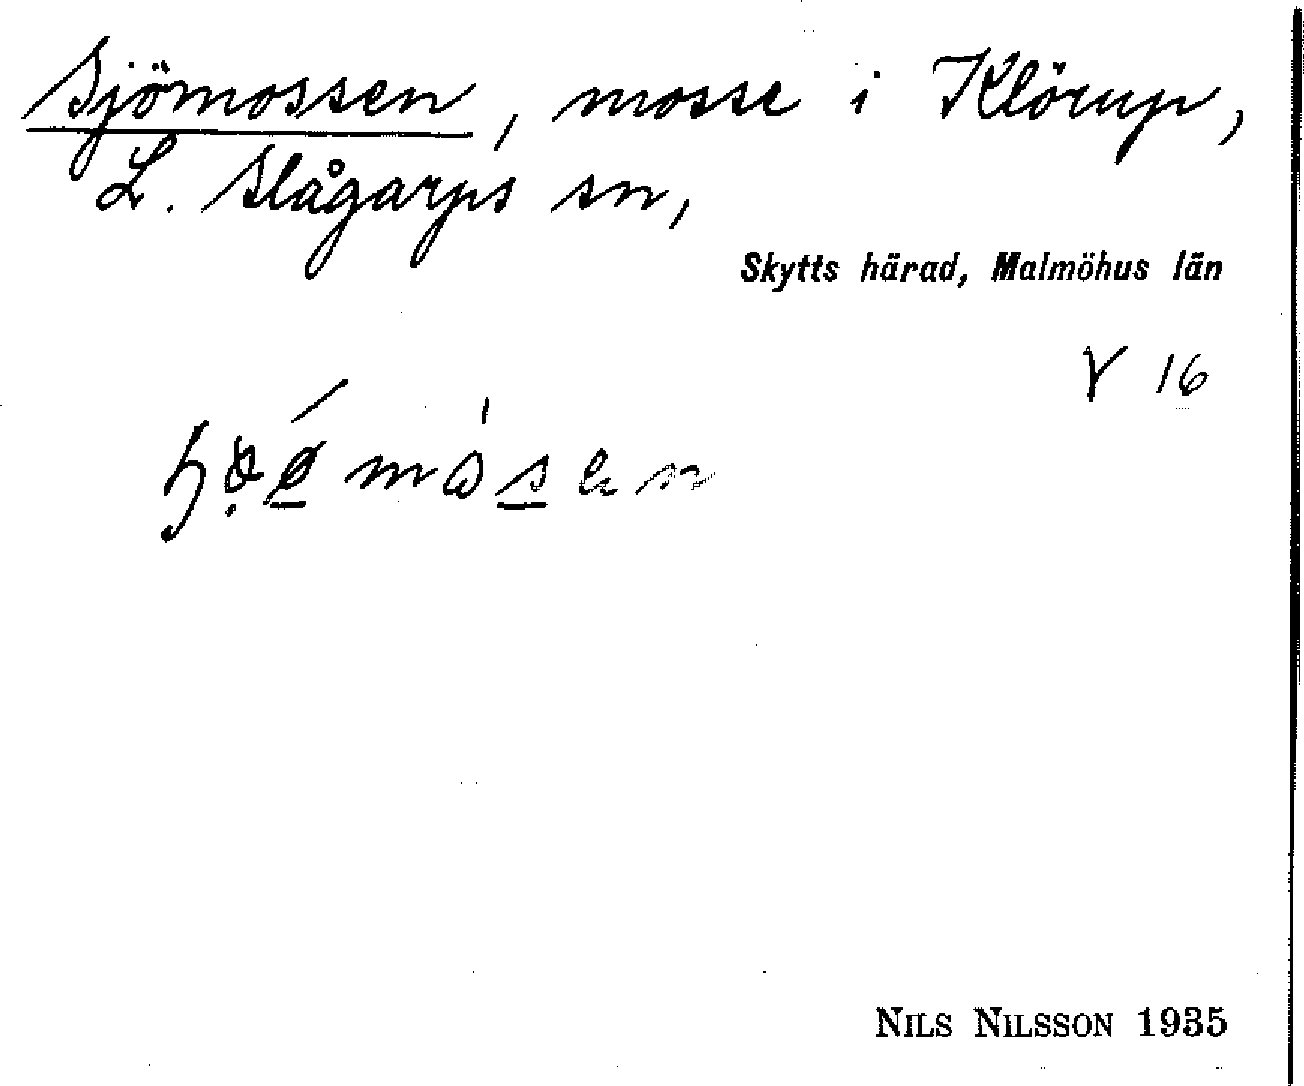 Sjömossen, mosse i Klörup,
L. Slågarps sn,
Skytts härad, Malmöhus län
γ 16
NILS NILSSON 1935